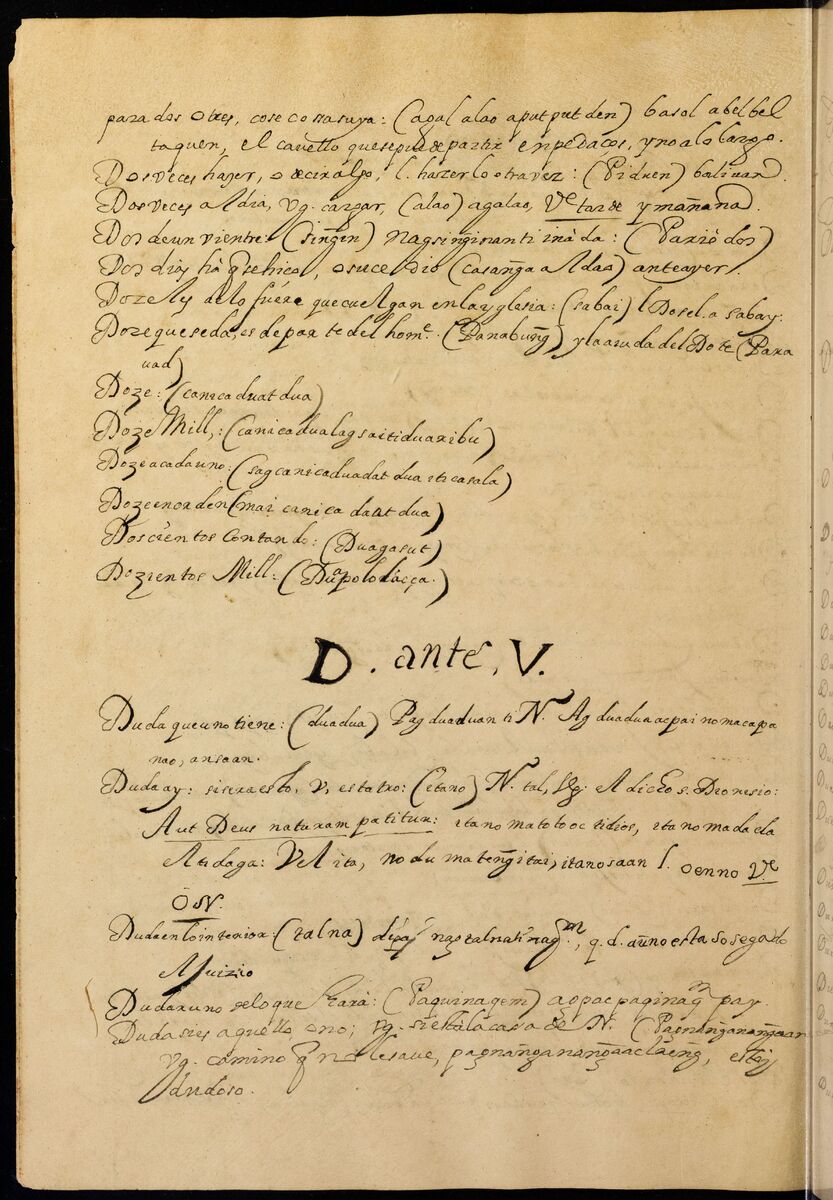 para dos o tres, cose costa suya: (agal alao aput put den) basol abelbel
taquen, el cavello que se puede partir en pedaços, y no a lo largo.
Dos veces hazer, o decir algo, l. hazerlo otra vez: (Piduen) baliuan
Dos veces al dia, vg. cargar, (alao) agalao, Ve tarde y mañana
Dos de un vientre: (singin) nagsinginanti inàda: (Pariò dos)
Dos dias hà q̃ se hico, o sucedio (casanga aldao) anteayer.
Dozeles de lo fuére que cuelgan en la yglesia: (sabai) l Dosel. a sabay.
Doze que se da, es de parte del home. (Panabung) y la aiuda del Dote (Paxa
uad)
Doze: (canicaduat dua)
Doze Mill,: (canicadua lagsa iti dua ribu)
Doze a cada uno: (sag canicaduadat dua iti casala)
Doze en orden (mai canica daut dua)
Doscientos Contando: (Duagasut)
Dozientos Mill: (Duapolo laçça.)
D. ante, V.
Duda que uno tiene: (duadua) Pag duaduan ti N. Ag duadua ac pai no macapa
nao, ansaan.
Duda ay: si sera esto, V, esta tro: (etano) N. tal, Vg: A dicho s. Dionesio:
Aut Deus naturam patitur: itano matoboc tidios, itano madada
Atidaga: VA ita, no dumatengitai, itano saan l. oenno Ve
ON.
Duda en lo interior: (talna) dipay nagtalna ti nagm, q. d. aũno esta sosegado
A Juizio
Dudar uno de lo que hará: (Paquinagem) agpacpaginagm pay.
Duda si es aquello, o no; vg. si està la casa de N. (Pagnanganangaan
vg. camino q̃ no le save, pagnanganangaac laeng, estoy
dudoso.